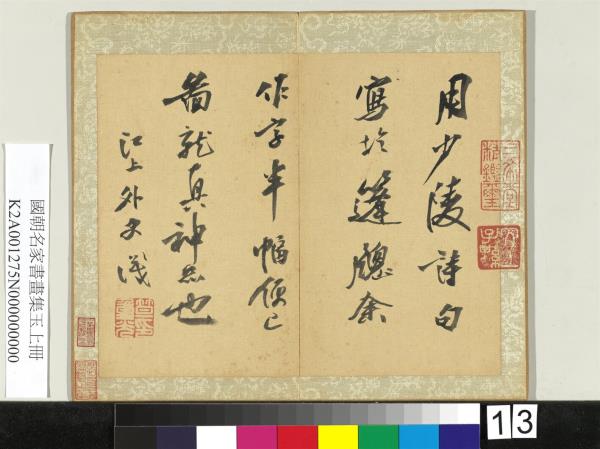 用少陵詩句
寫於篷牕余
作字半幅便已
畫就真神品也
江上外史識
三希堂
精鑑璽
宜子孫
國朝名家書畫集玉上冊
K2A001275N000000000
13